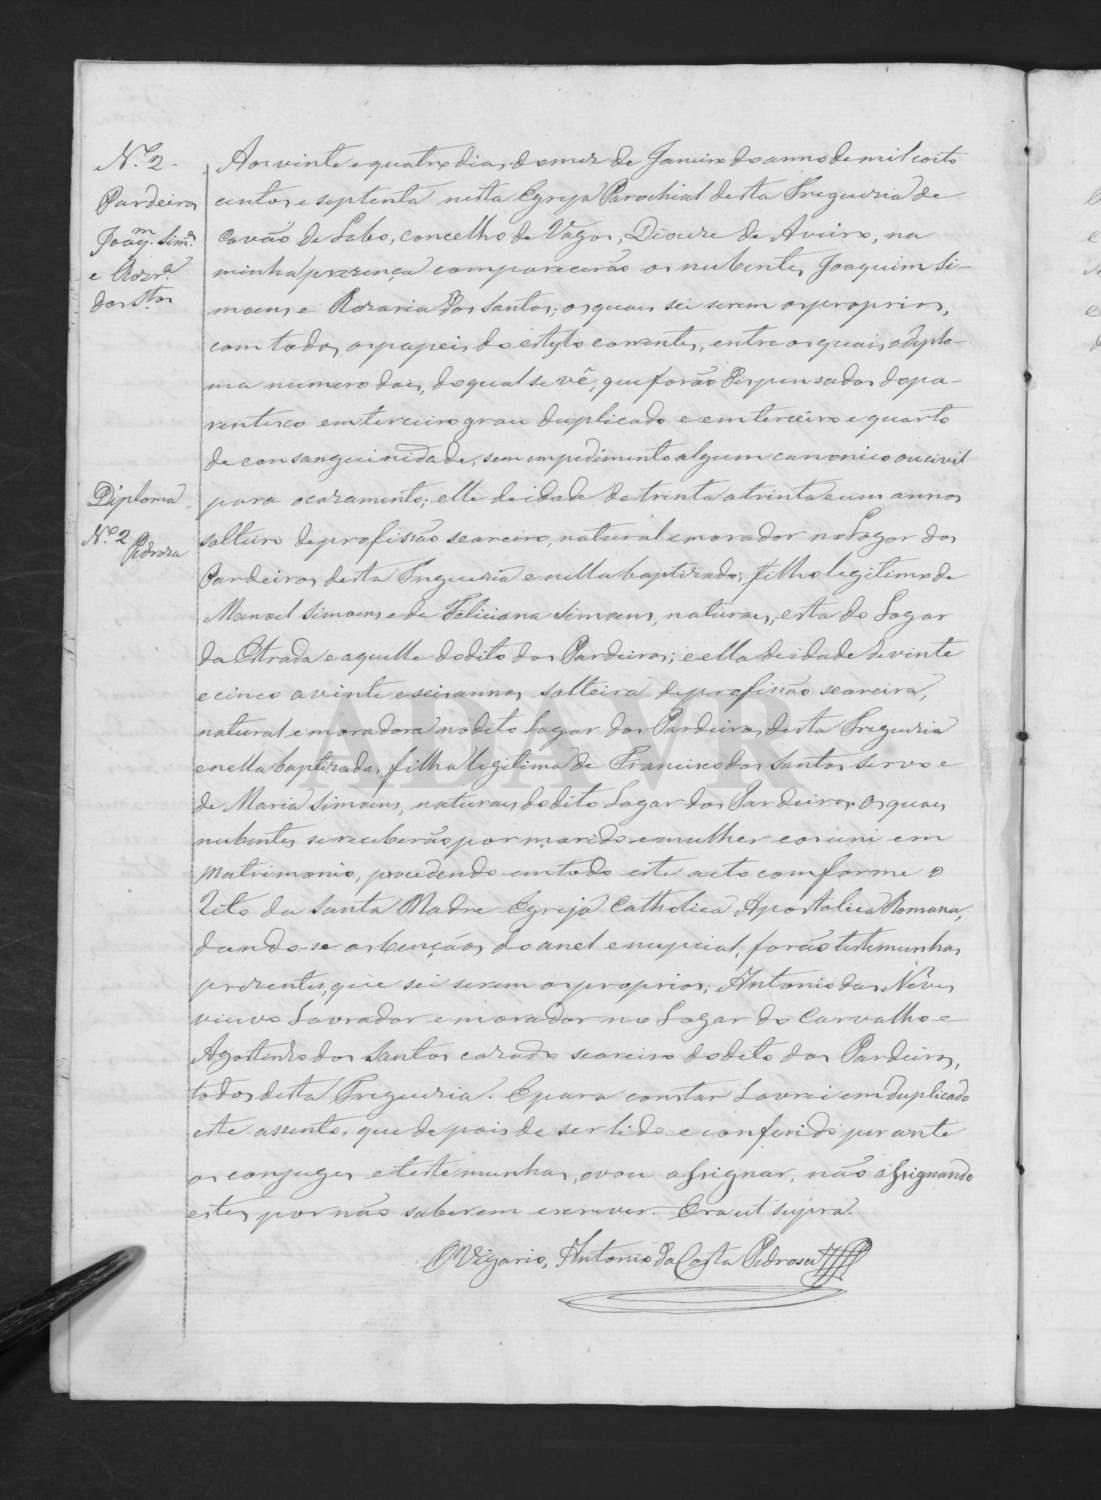 N.º 2.
Pardeiros
Joaq.m Sim.s
e Rozr.a
dos St.os
Diploma
N.º 2 Pedroza
Aos vinte e quatro dias do mez de Janeiro do anno de mil oito
centos e septenta nesta Egreja Parochial desta Freguezia de
Covão de Lobo, concelho de Vagos, Diocese de Aveiro, na
minha prezença comparecerão os nubentes Joaquim Si-
moens e Rozaria dos Santos; os quaes sei serem os proprios,
com todos os papeis do estylo correntes, entre os quaes o dyplo-
ma numero dois, do qual se vê, que forão Dispensados do pa-
rentesco em terceiro grau duplicado e em terceiro e quarto
de consanguinidade, sem empedimento algum canonico ou civil
para o cazamento; elle de idade de trinta a trinta e um annos
solteiro de profissão seareiro, natural e morador no Logar dos
Pardeiros desta Freguezia e nella baptizado; filho legitimo de
Manoel Simoens e de Feliciana Simoens, naturaes, esta do Logar
da Estrada e aquelle do dito dos Pardeiros; e ella de idade de vinte
e cinco a vinte e seis annos solteira de profissão seareira,
natural e moradora no dito Logar dos Pardeiros desta Freguezia
e nella baptizada, filha legitima de Francisco dos Santos Servo e
de Maria Simoens, naturaes do dito Logar dos Pardeiros. Os quaes
nubentes se receberão por marido e mulher e os uni em
Matrimonio, procedendo em todo este acto conforme o
Rito da Santa Madre Egreja Catholica Apostolica Romana,
dando-se as bençãos do anel e nupcial; forão testemunhas
prezentes, que sei serem os proprios, Antonio das Neves
viuvo Lavrador e morador no Logar do Carvalho e
Agostinho dos Santos cazado seareiro do dito dos Pardeiros,
todos desta Freguezia. E para constar Lavrei em duplicado
este assento, que depois de ser lido e conferido perante
os conjuges e testemunhas, o vou assignar, não assignando
estes por não saberem escrever. Era ut supra.
O Vigario, Antonio da Costa Pedrosa
ADAVR